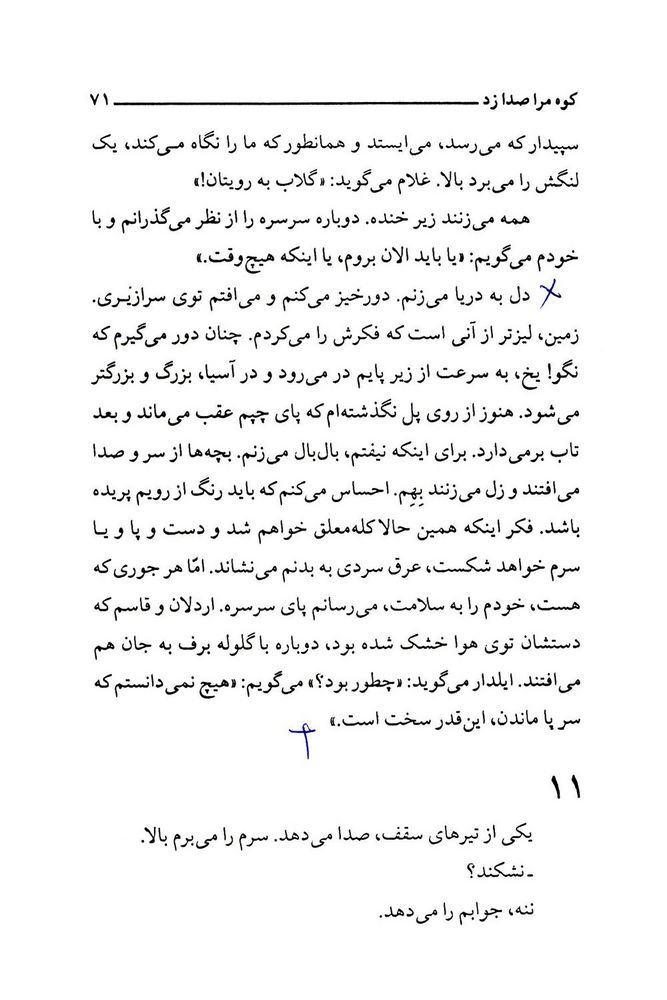 کوه مرا صدا زد ۷۱
سپیدار که می‌رسد، می‌ایستد و همانطور که ما را نگاه می‌کند، یک
لنگش را می‌برد بالا. غلام می‌گوید: «گلاب به رویتان!»
همه می‌زنند زیر خنده. دوباره سرسره را از نظر می‌گذرانم و با
خودم می‌گویم: «یا باید الان بروم، یا اینکه هیچ‌وقت.»
دل به دریا می‌زنم. دورخیز می‌کنم و می‌افتم توی سرازیَری.
زمین، لیزتر از آنی است که فکرش را می‌کردم. چنان دور می‌گیرم که
نگو! یخ، به سرعت از زیر پایم در می‌رود و در آسیا، بزرگ و بزرگتر
می‌شود. هنوز از روی پل نگذشته‌ام که پای چپم عقب می‌ماند و بعد
تاب برمی‌دارد. برای اینکه نیفتم، بال‌بال می‌زنم. بچه‌ها از سر و صدا
می‌افتند و زل می‌زنند بِهِم. احساس می‌کنم که باید رنگ از رویم پریده
باشد. فکر اینکه همین حالا کله‌معلق خواهم شد و دست و پا و یا
سرم خواهد شکست، عرق سردی به بدنم می‌نشاند. امّا هر جوری که
هست، خودم را به سلامت، می‌رسانم پای سرسره. اردلان و قاسم که
دستشان توی هوا خشک شده بود، دوباره با گلوله برف به جان هم
می‌افتند. ایلدار می‌گوید: «چطور بود؟» می‌گویم: «هیچ نمی‌دانستم که
سر پا ماندن، این‌قدر سخت است.»
۱۱
یکی از تیرهای سقف، صدا می‌دهد. سرم را می‌برم بالا.
ـ نشکند؟
ننه، جوابم را می‌دهد.